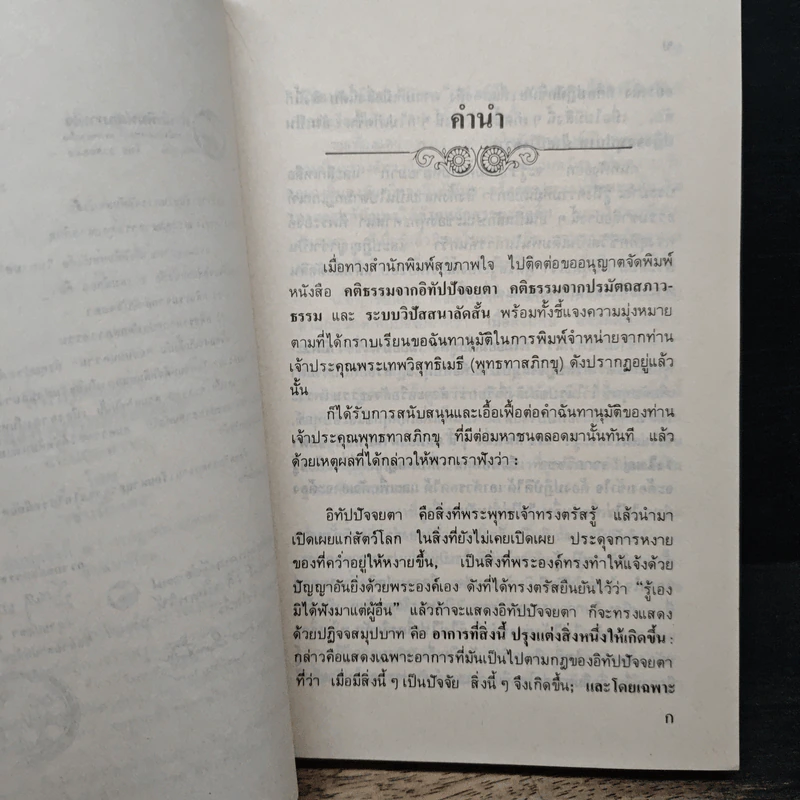 คำนำ
เมื่อทางสำนักพิมพ์สุขภาพใจ ไปติดต่อขออนุญาตจัดพิมพ์
หนังสือ คติธรรมจากอิทัปปัจจยตา คติธรรมจากปรมัตถสภาว-
ธรรม และ ระบบวิปัสสนาลัดสั้น พร้อมทั้งชี้แจงความมุ่งหมาย
ตามที่ได้กราบเรียนขอฉันทานุมัติในการพิมพ์จำหน่ายจากท่าน
เจ้าประคุณพระเทพวิสุทธิเมธี (พุทธทาสภิกขุ) ดังปรากฏอยู่แล้ว
นั้น
ก็ได้รับการสนับสนุนและเอื้อเฟื้อต่อคำฉันทานุมัติของท่าน
เจ้าประคุณพุทธทาสภิกขุ ที่มีต่อมหาชนตลอดมานั้นทันที แล้ว
ด้วยเหตุผลที่ได้กล่าวให้พวกเราฟังว่า :
อิทัปปัจจยตา คือสิ่งที่พระพุทธเจ้าทรงตรัสรู้ แล้วนำมา
เปิดเผยแก่สัตว์โลก ในสิ่งที่ยังไม่เคยเปิดเผย ประดุจการหงาย
ของที่คว่ำอยู่ให้หงายขึ้น, เป็นสิ่งที่พระองค์ทรงทำให้แจ้งด้วย
ปัญญาอันยิ่งด้วยพระองค์เอง ดังที่ได้ทรงตรัสยืนยันไว้ว่า "รู้เอง
มิได้ฟังมาแต่ผู้อื่น" แล้วถ้าจะแสดงอิทัปปัจจยตา ก็จะทรงแสดง
ด้วยปฏิจจสมุปบาท คือ อาการที่สิ่งนี้ ปรุงแต่งสิ่งหนึ่งให้เกิดขึ้น :
กล่าวคือแสดงเฉพาะอาการที่มันเป็นไปตามกฎของอิทัปปัจจยตา
ที่ว่า เมื่อมีสิ่งนี้ ๆ เป็นปัจจัย สิ่งนี้ ๆ จึงเกิดขึ้น; และโดยเฉพาะ
ก